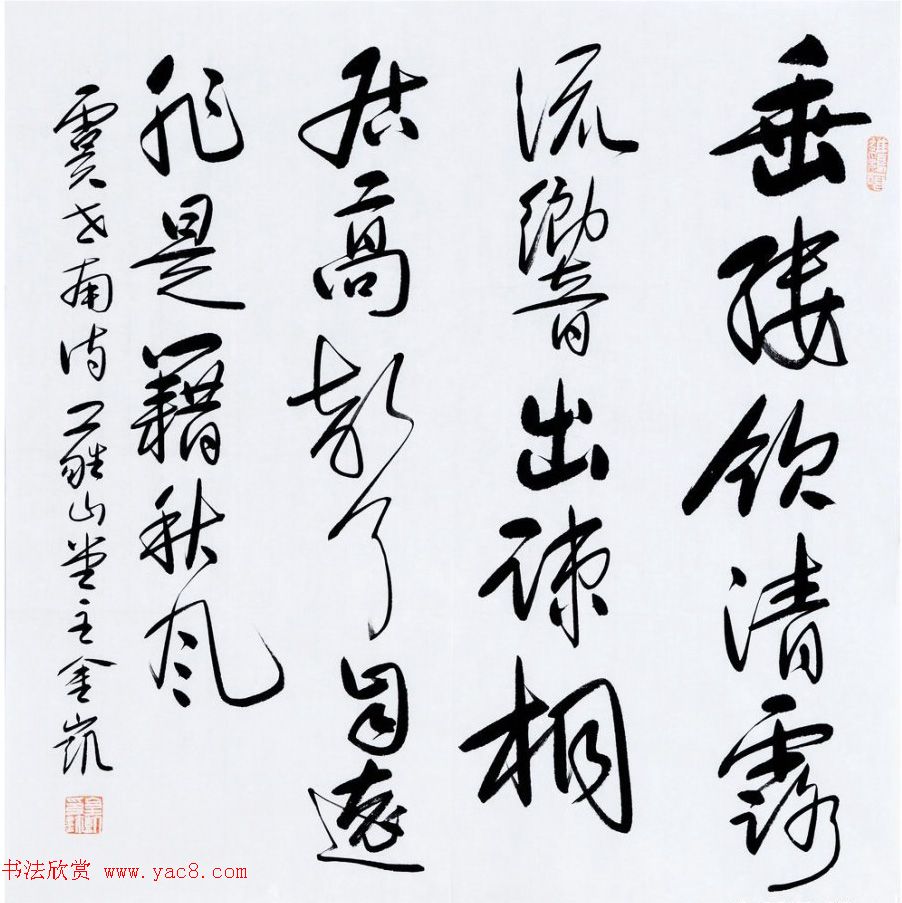 垂緌飲清露
流響出疎桐
居高聲自遠
非是藉秋风
虞世南诗 山堂主金
书法欣赏 www.yac8.com